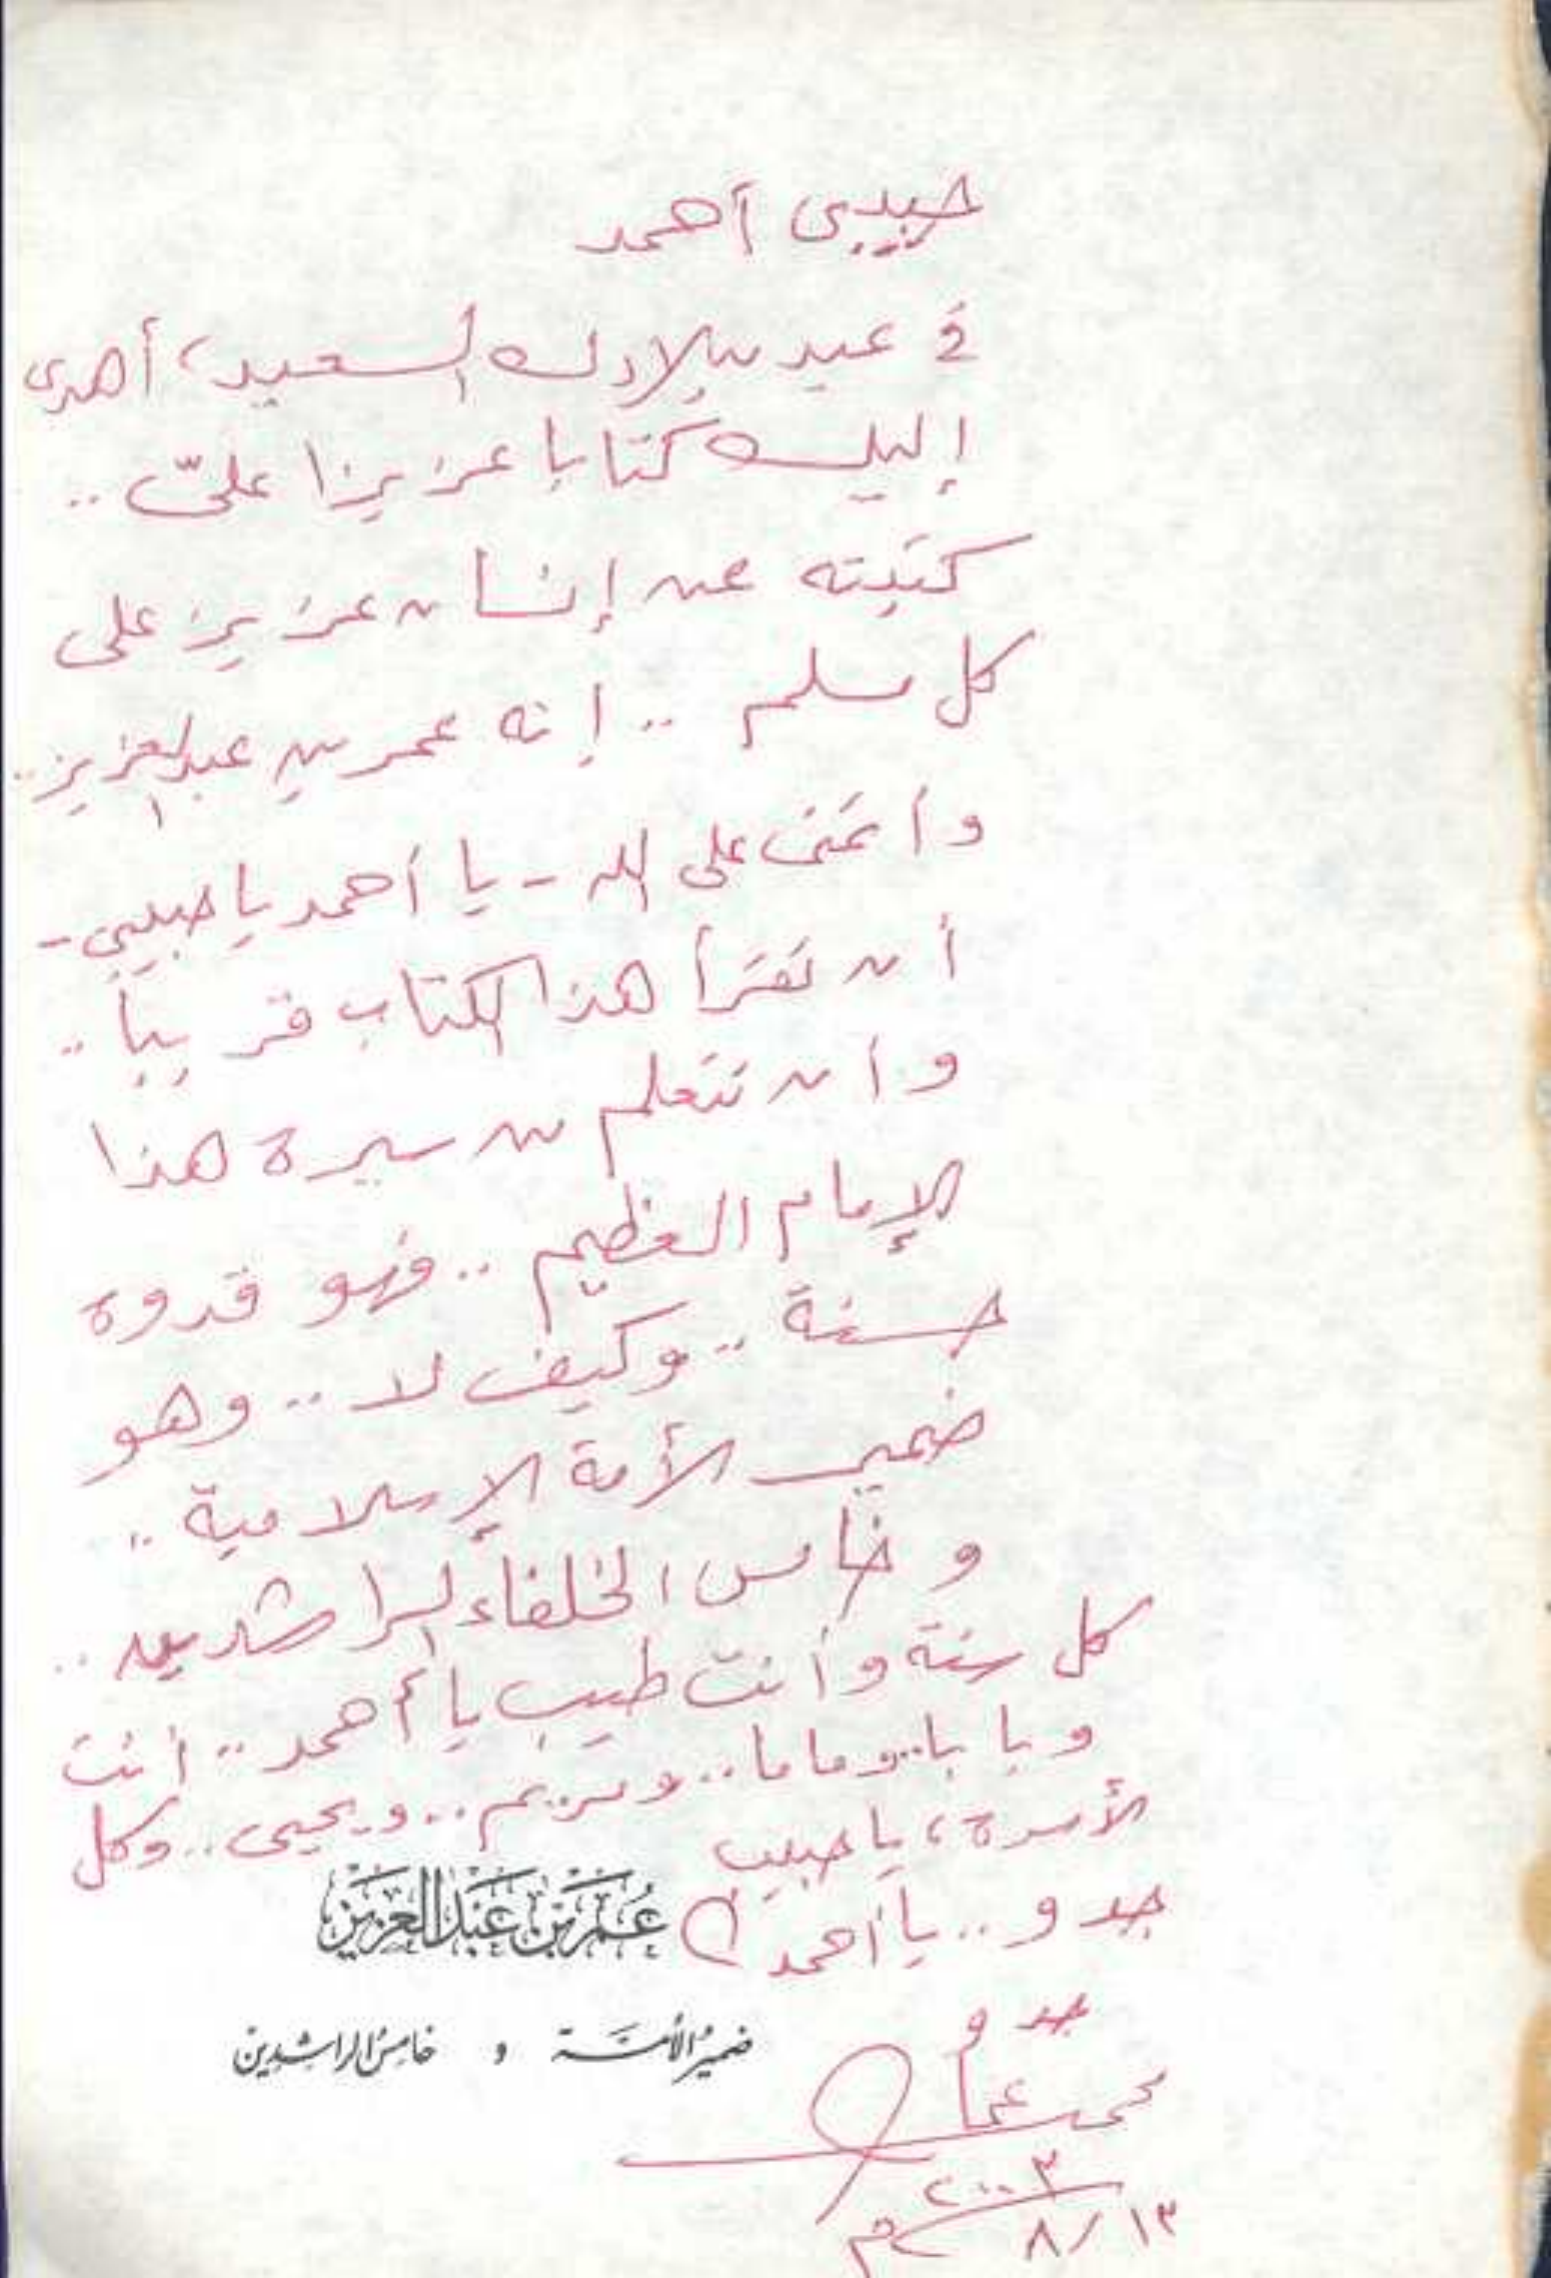 حبيبى أحمد
فى عيد ميلادك السعيد، أهدى
إليك كتابا عزيزا علىّ ..
كتبته عن إنسان عزيز على
كل مسلم .. إنه عمر بن عبد العزيز ..
وأتمنى على الله - يا أحمد يا حبيبى -
أن تقرأ هذا الكتاب قريباً ..
وأن تتعلم من سيرة هذا
الإمام العظيم .. فهو قدوة
حسنة .. وكيف لا .. وهو
ضمير الأمة الإسلامية ..
وخامس الخلفاء الراشدين ..
كل سنة وأنت طيب يا أحمد .. أنت
وبابا .. وماما .. ومريم .. ويحيى .. وكل
الأسرة، يا حبيب
جدو .. يا أحمد
عُمَر بْن عَبْد العَزيز
ضمير الأمة و خامس الراشدين
جدو
محمد عمارة
١٣/٨
٢٠٠٣م